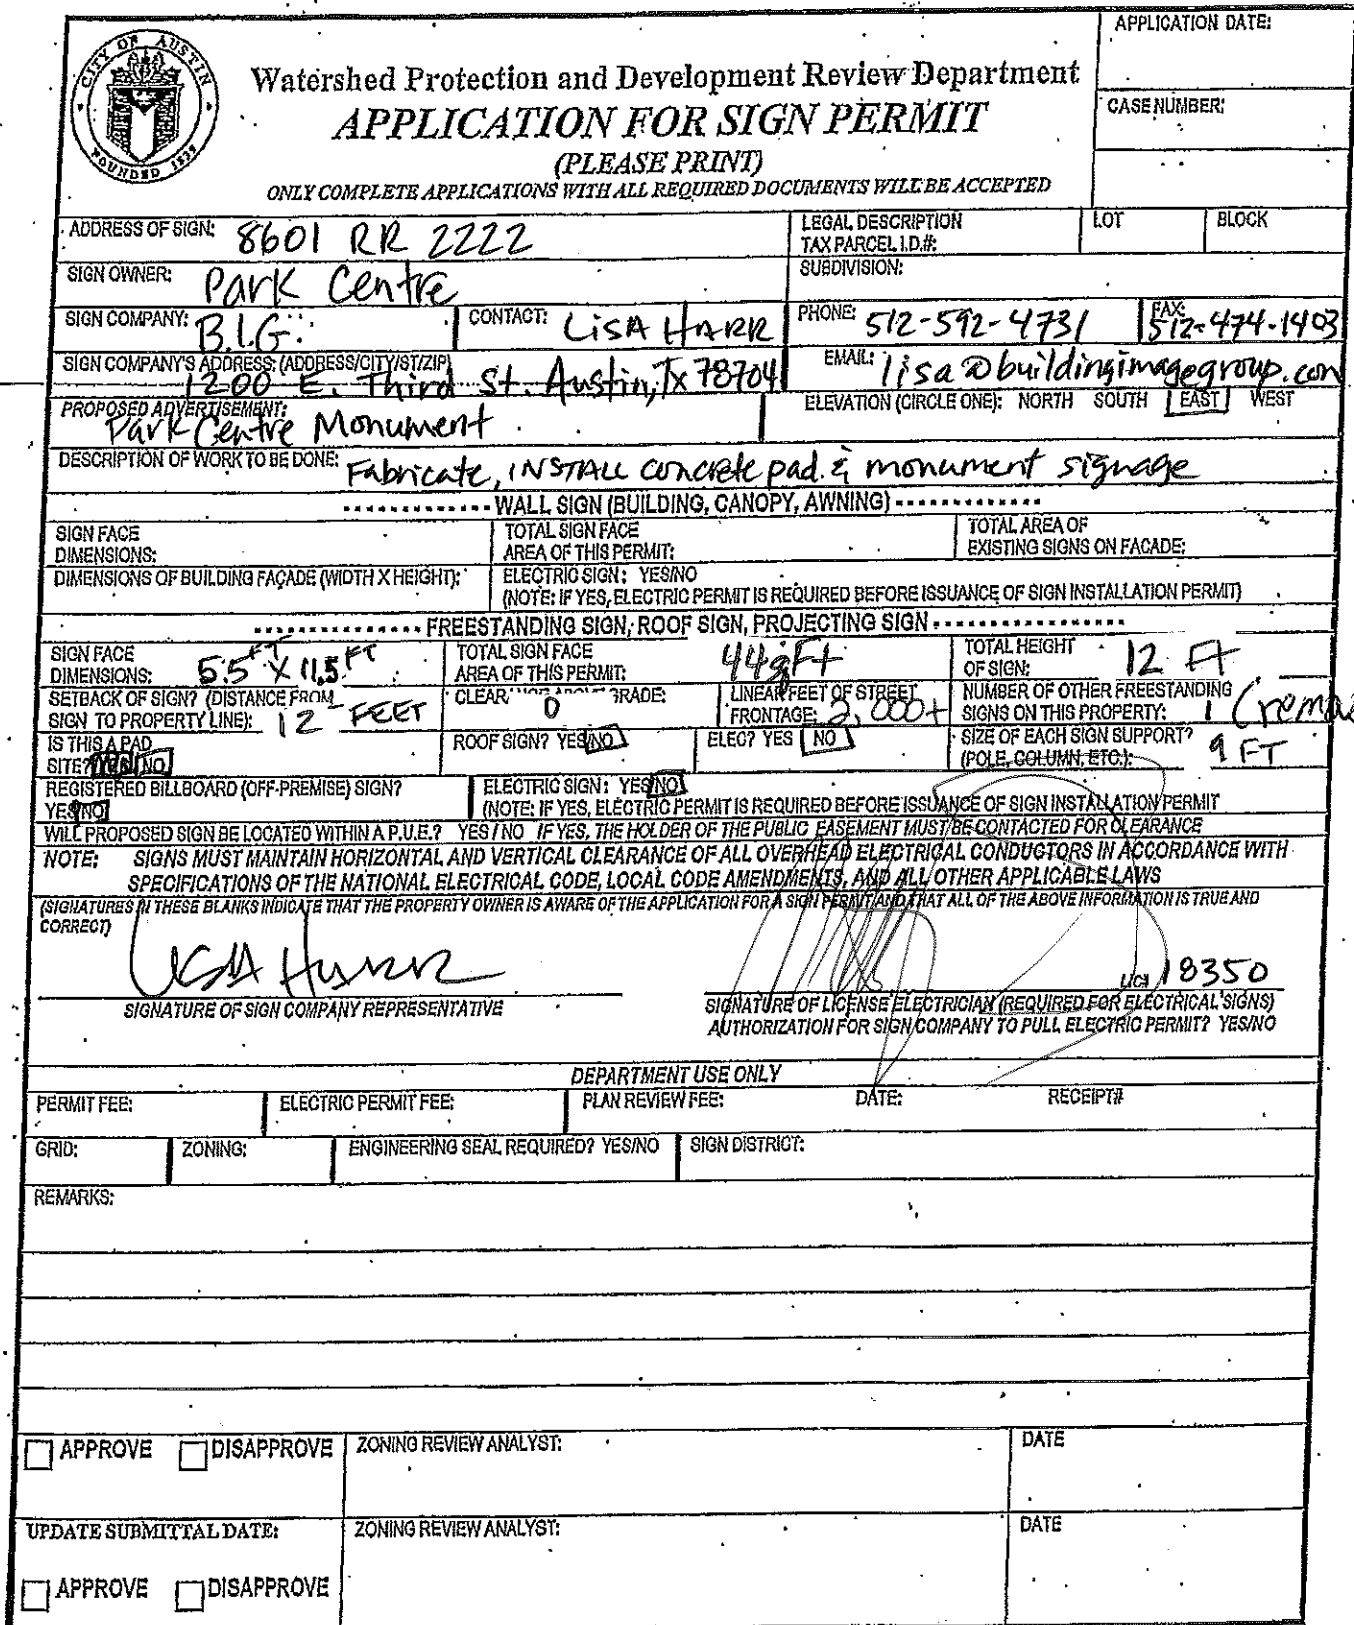 APPLICATION DATE:
CITY OF AUSTIN
FOUNDED 1839
Watershed Protection and Development Review Department
APPLICATION FOR SIGN PERMIT
CASE NUMBER:
(PLEASE PRINT)
ONLY COMPLETE APPLICATIONS WITH ALL REQUIRED DOCUMENTS WILL BE ACCEPTED
ADDRESS OF SIGN: 8601 RR 2222 LEGAL DESCRIPTION LOT BLOCK
TAX PARCEL I.D.#:
SIGN OWNER: Park Centre SUBDIVISION:
SIGN COMPANY: B.I.G. CONTACT: LISA HARR PHONE: 512-592-4731 FAX: 512-474-1403
SIGN COMPANY'S ADDRESS: (ADDRESS/CITY/ST/ZIP) EMAIL: lisa@buildingimagegroup.com
1200 E. Third St. Austin, Tx 78704
PROPOSED ADVERTISEMENT: ELEVATION (CIRCLE ONE): NORTH SOUTH EAST WEST
Park Centre Monument
DESCRIPTION OF WORK TO BE DONE: Fabricate, INSTALL concrete pad. & monument signage
WALL SIGN (BUILDING, CANOPY, AWNING)
SIGN FACE TOTAL SIGN FACE TOTAL AREA OF
DIMENSIONS: AREA OF THIS PERMIT: EXISTING SIGNS ON FACADE:
DIMENSIONS OF BUILDING FAÇADE (WIDTH X HEIGHT): ELECTRIC SIGN: YES/NO
(NOTE: IF YES, ELECTRIC PERMIT IS REQUIRED BEFORE ISSUANCE OF SIGN INSTALLATION PERMIT)
FREESTANDING SIGN, ROOF SIGN, PROJECTING SIGN
SIGN FACE TOTAL SIGN FACE TOTAL HEIGHT
DIMENSIONS: 5.5 FT X 11.5 FT AREA OF THIS PERMIT: 44 Ft OF SIGN: 12 FT
SETBACK OF SIGN? (DISTANCE FROM GRADE: LINEAR FEET OF STREET NUMBER OF OTHER FREESTANDING
SIGN TO PROPERTY LINE): 12 FEET 0 FRONTAGE: 2,000+ SIGNS ON THIS PROPERTY: 1
IS THIS A PAD ROOF SIGN? YES/NO ELEC? YES NO SIZE OF EACH SIGN SUPPORT?
SITE? YES/NO (POLE, COLUMN, ETC.): 9 FT
REGISTERED BILLBOARD (OFF-PREMISE) SIGN? ELECTRIC SIGN: YES/NO
YES/NO (NOTE: IF YES, ELECTRIC PERMIT IS REQUIRED BEFORE ISSUANCE OF SIGN INSTALLATION PERMIT
WILL PROPOSED SIGN BE LOCATED WITHIN A P.U.E.? YES / NO IF YES, THE HOLDER OF THE PUBLIC EASEMENT MUST BE CONTACTED FOR CLEARANCE
NOTE: SIGNS MUST MAINTAIN HORIZONTAL AND VERTICAL CLEARANCE OF ALL OVERHEAD ELECTRICAL CONDUCTORS IN ACCORDANCE WITH
SPECIFICATIONS OF THE NATIONAL ELECTRICAL CODE, LOCAL CODE AMENDMENTS, AND ALL OTHER APPLICABLE LAWS
(SIGNATURES IN THESE BLANKS INDICATE THAT THE PROPERTY OWNER IS AWARE OF THE APPLICATION FOR A SIGN PERMIT AND THAT ALL OF THE ABOVE INFORMATION IS TRUE AND
CORRECT)
LISA HARR 18350
SIGNATURE OF SIGN COMPANY REPRESENTATIVE SIGNATURE OF LICENSE ELECTRICIAN (REQUIRED FOR ELECTRICAL SIGNS)
AUTHORIZATION FOR SIGN COMPANY TO PULL ELECTRIC PERMIT? YES/NO
DEPARTMENT USE ONLY
PERMIT FEE: ELECTRIC PERMIT FEE: PLAN REVIEW FEE: DATE: RECEIPT#
GRID: ZONING: ENGINEERING SEAL REQUIRED? YES/NO SIGN DISTRICT:
REMARKS:
APPROVE DISAPPROVE ZONING REVIEW ANALYST: DATE
UPDATE SUBMITTAL DATE: ZONING REVIEW ANALYST: DATE
APPROVE DISAPPROVE